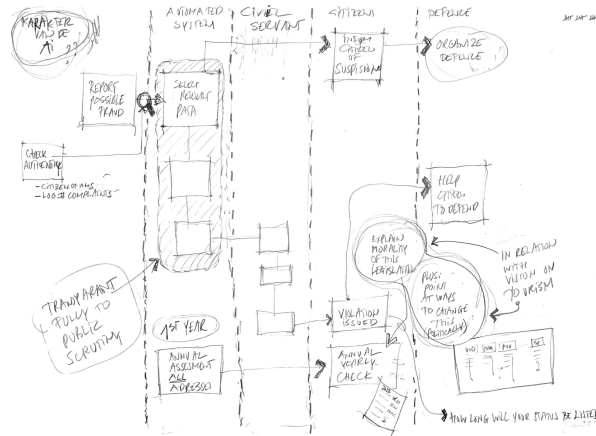 KARAKTER
VAN DE
AI
??
AUTOMATED
SYSTEM
CIVIL
SERVANT
CITIZENS
DEFENCE
REPORT
POSSIBLE
FRAUD
CHECK
-CITIZENS
-LOG # COMPLAINTS
SELECT
DATA
INFORM
CITIZEN
OF
SUSPISIONS
ORGANIZE
DEFENCE
HELP
CITIZEN
TO DEFEND
EXPLAIN
MORALITY
OF THIS
LEGISLATION
PLUS:
POINT
AT WAYS
TO CHANGE
THIS
(POLITICALLY)
IN RELATION
WITH
VISION ON
TOURISM
TRANSPARANT
FULLY TO
PUBLIC
SCRUTINY
1ST YEAR
ANNUAL
ASSESMENT
ALL
ADRESSES
VIOLATION
ISSUED
ANNUAL
YEARLY
CHECK
HOW LONG WILL YOUR STATUS BE LISTED